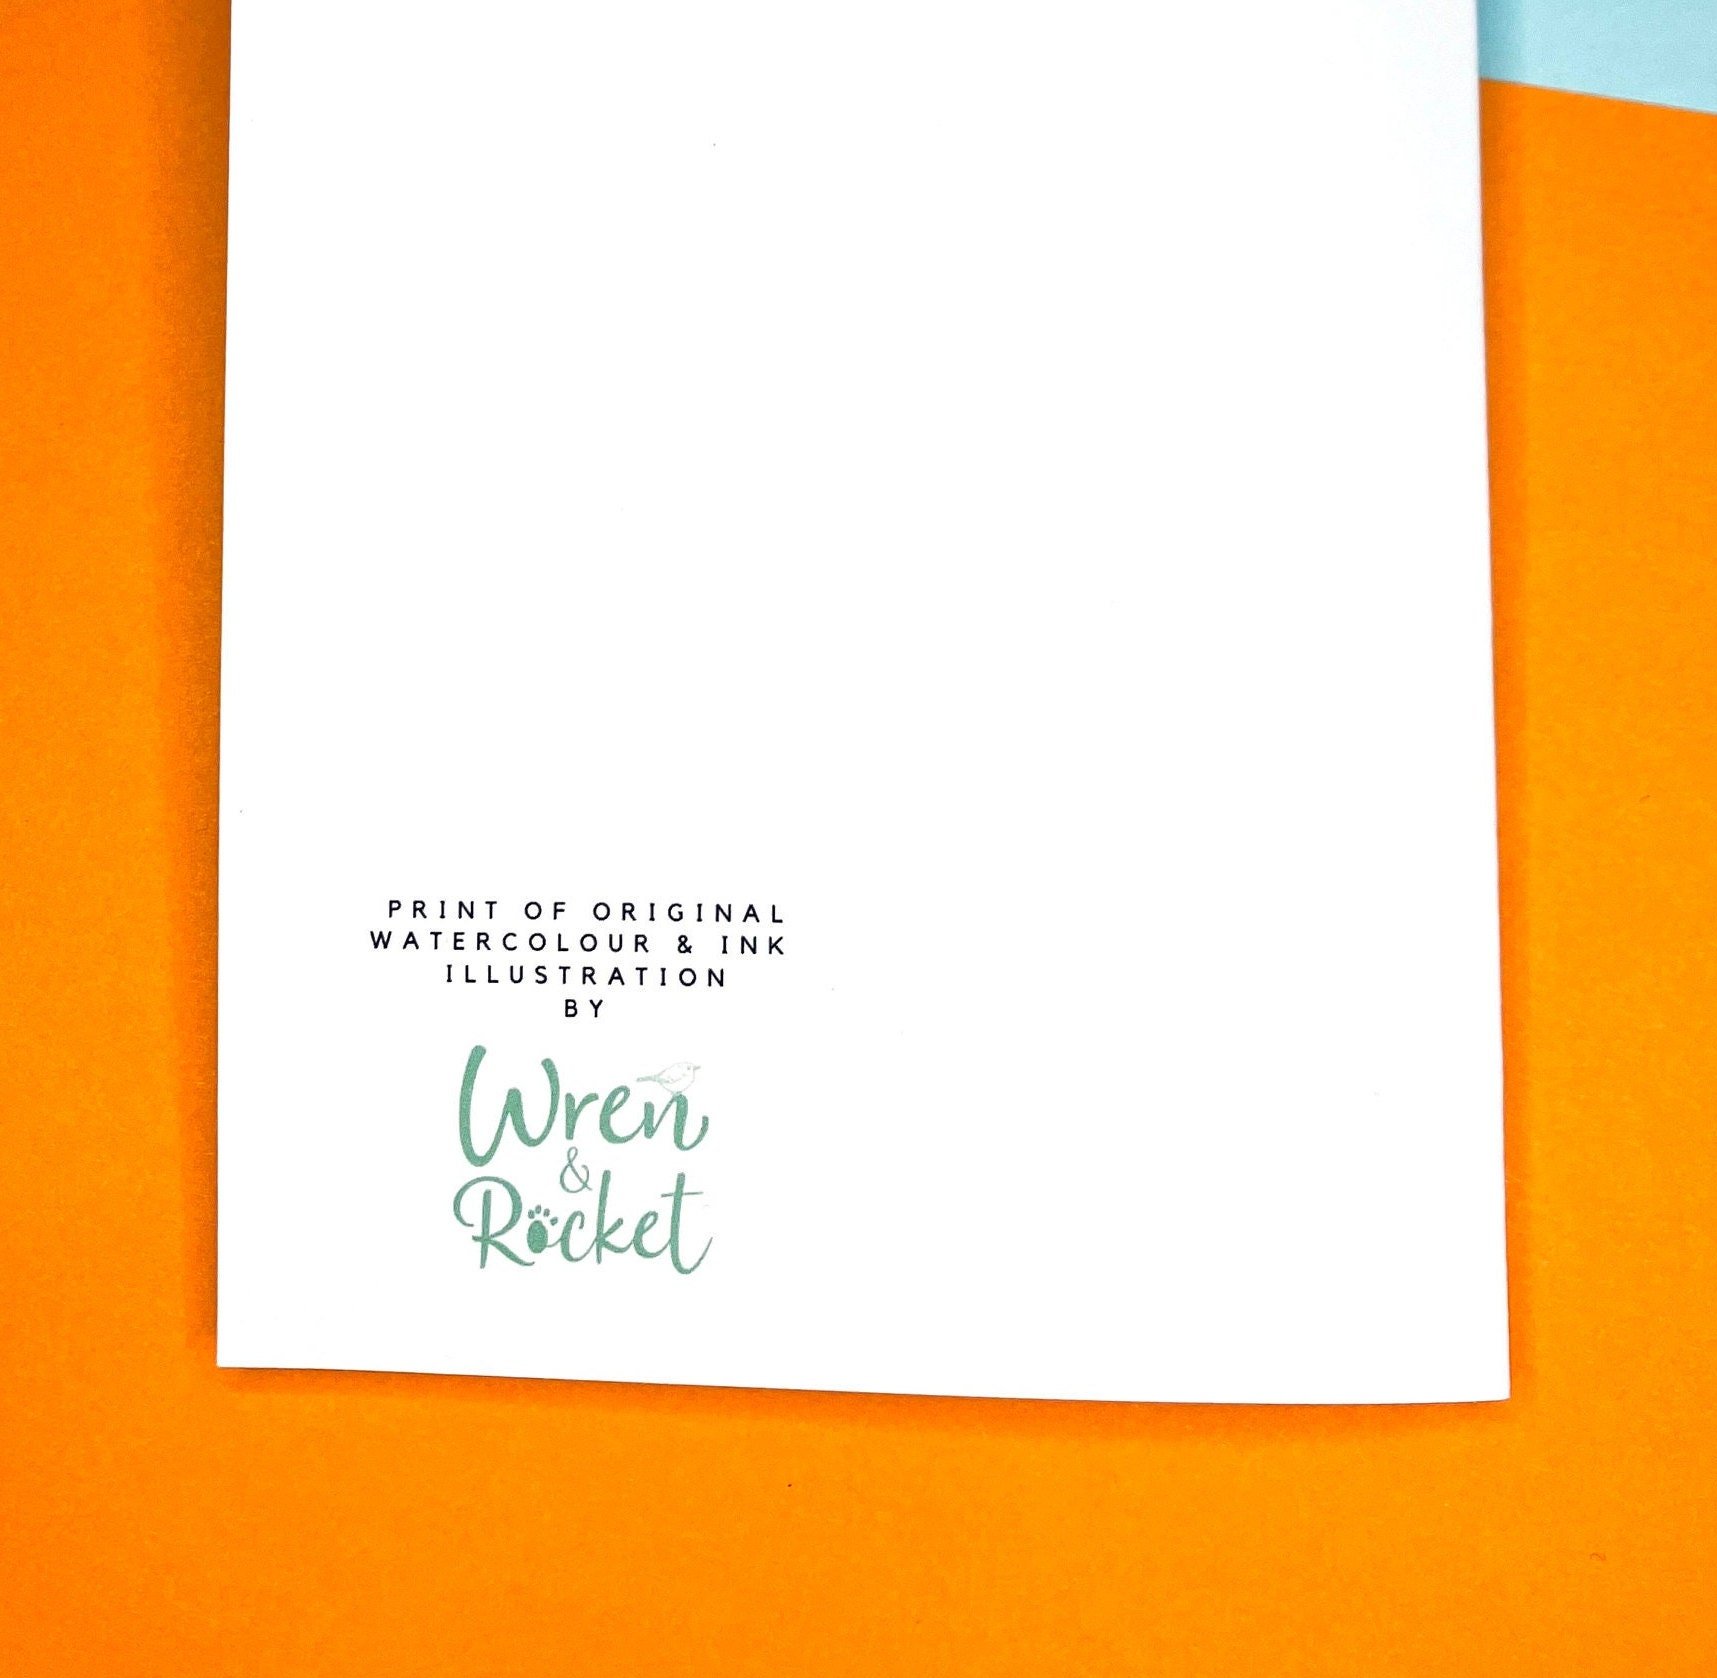 PRINT OF ORIGINAL
WATERCOLOUR & INK
ILLUSTRATION
BY
Wren
&
Rocket